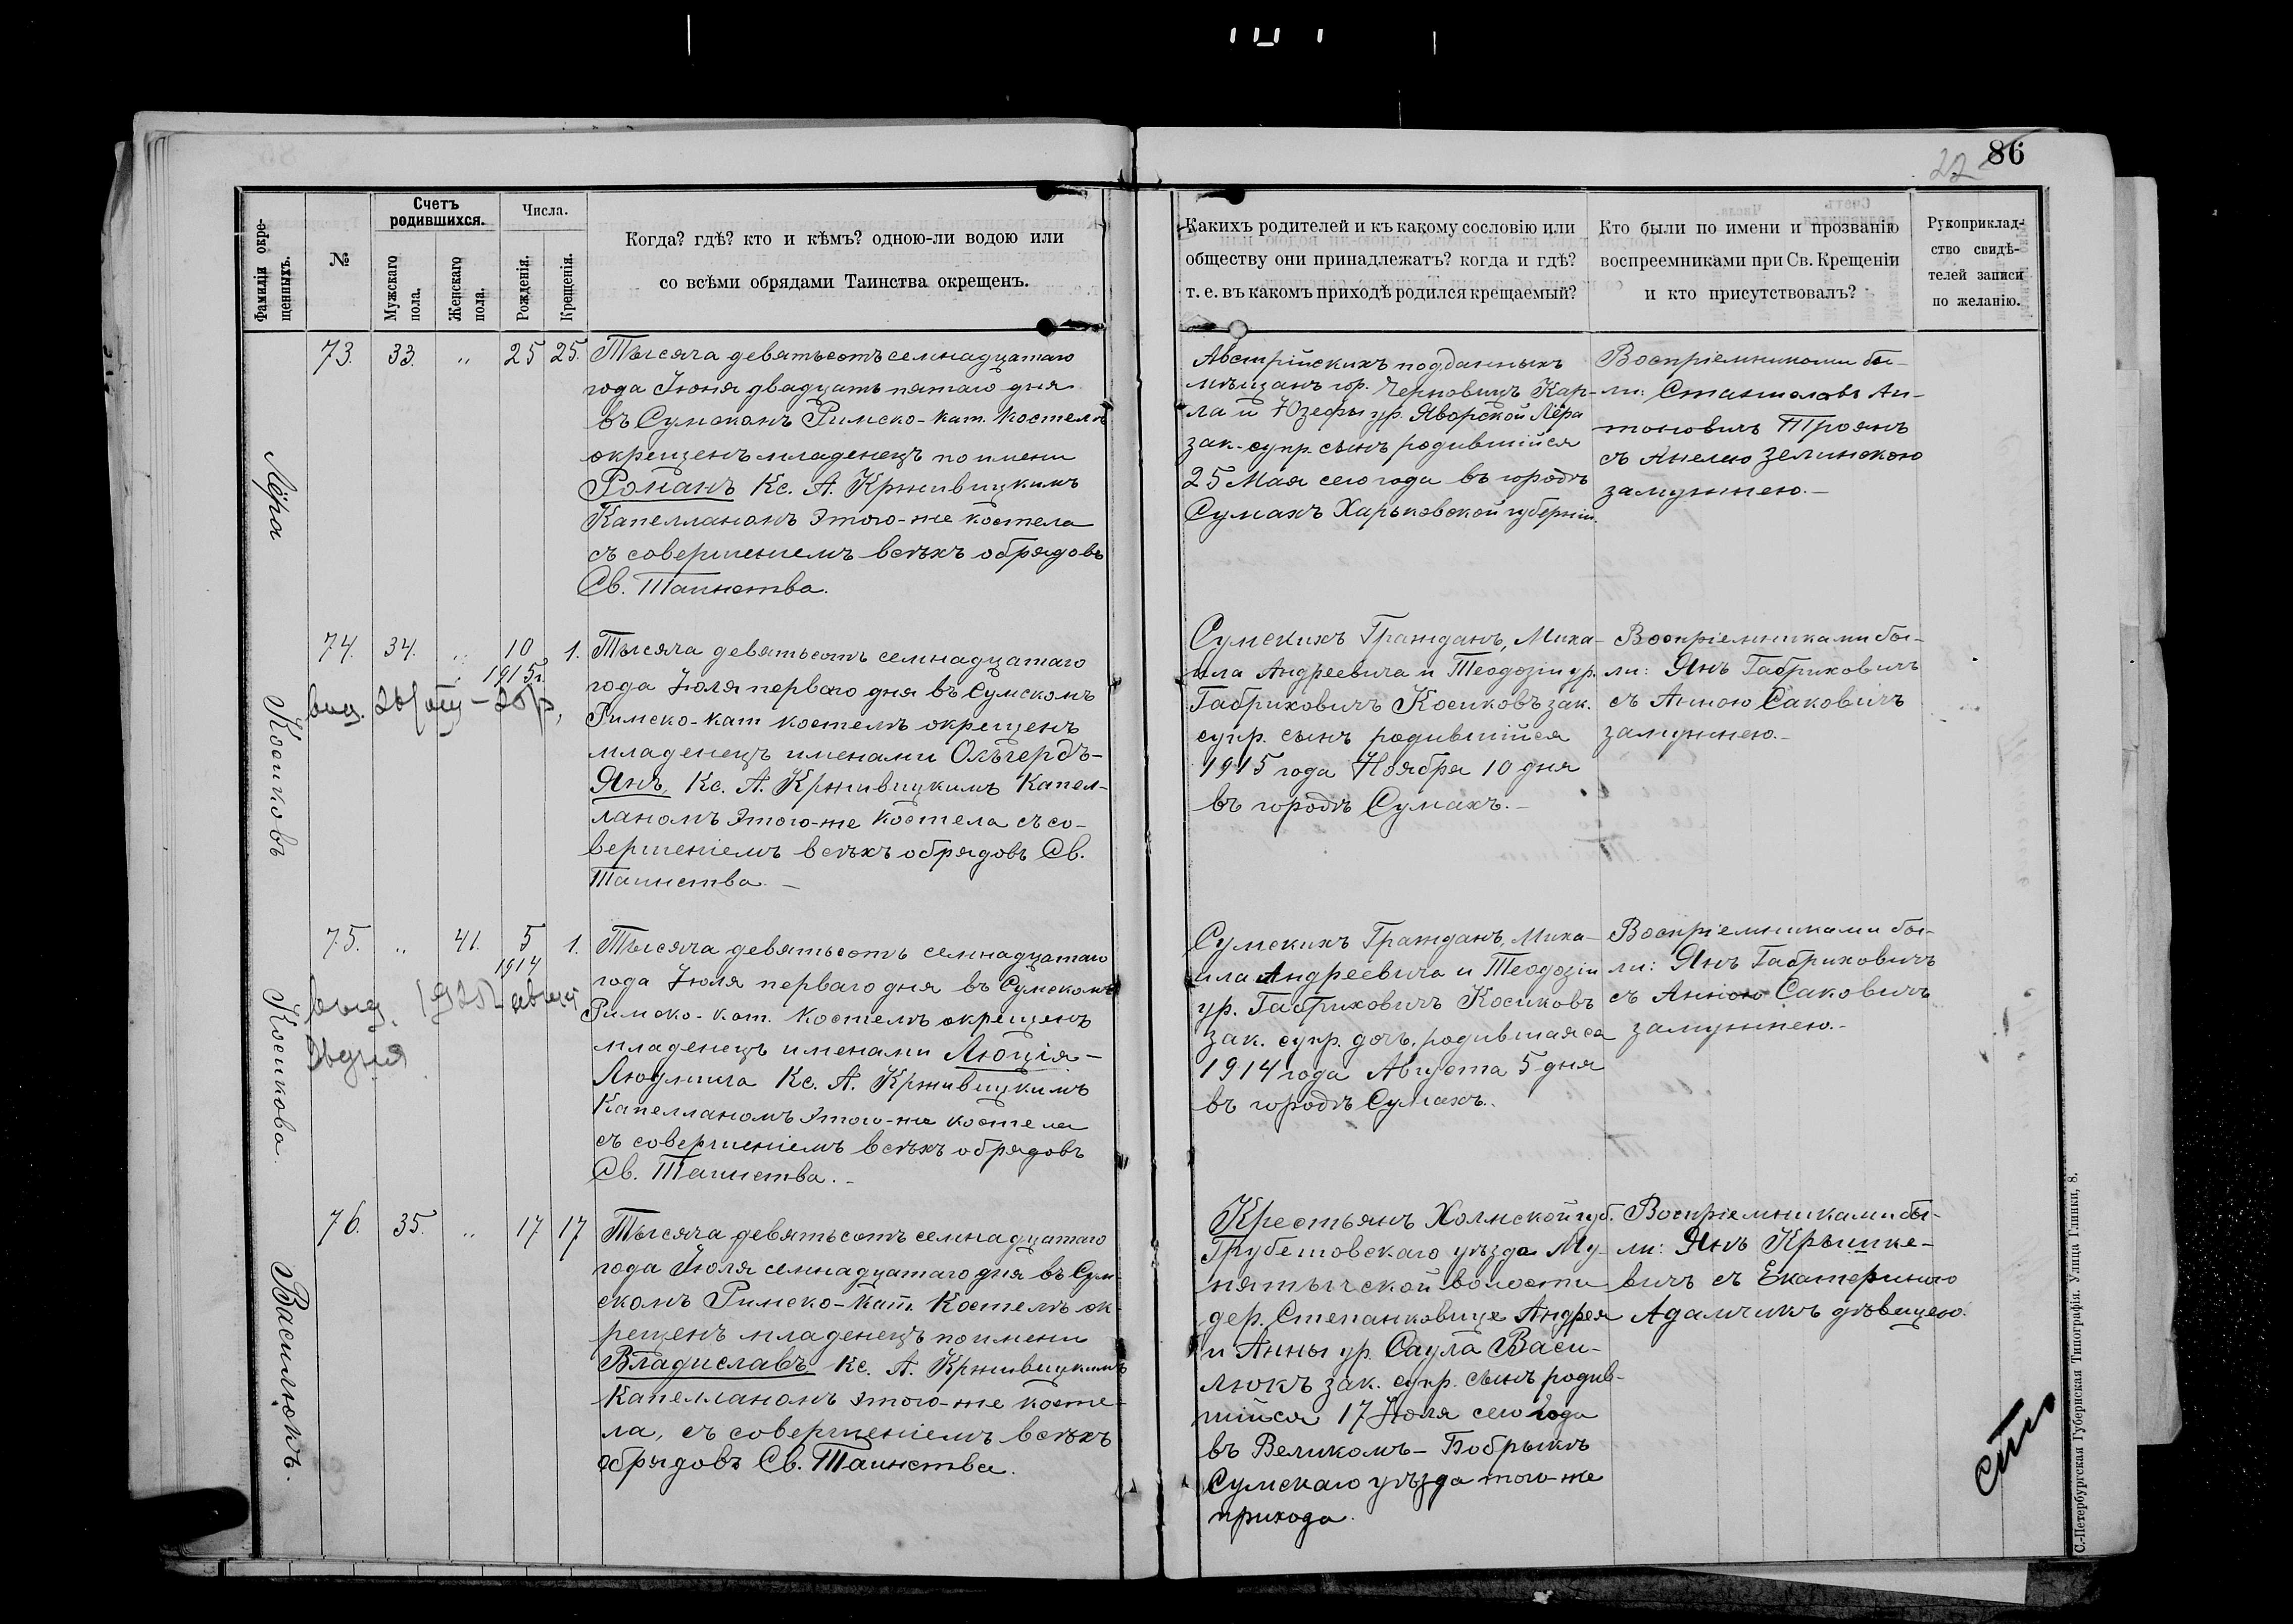 22 86
Фамиліи окре-
щенныхъ.
№
Счетъ
родившихся.
Мужскаго
пола.
Женскаго
пола.
Числа.
Рожденія.
Крещенія.
Когда? гдѣ? кто и кѣмъ? одною-ли водою или
со всѣми обрядами Таинства окрещенъ.
Какихъ родителей и къ какому сословію или
обществу они принадлежатъ? когда и гдѣ?
т. е. въ какомъ приходѣ родился крещаемый?
Кто были по имени и прозванію
воспреемниками при Св. Крещеніи
и кто присутствовалъ?
Рукоприклад-
ство свидѣ-
телей записи
по желанію.
Лёра
73. 33. „ 25 25.
Тысяча девятьсотъ семнадцатаго
года Іюня двадцать пятаго дня
въ Сумскомъ Римско-кат. костелѣ
окрещенъ младенецъ по имени
Романъ Кс. А. Крживицкимъ
Капелланомъ этого-же костела
съ совершеніемъ всѣхъ обрядовъ
Св. Таинства.
Австрійскихъ подданныхъ
мѣщанъ гор. Черновицъ Кар-
ла и Юзефы ур. Яворской Лёра
зак. супр. сынъ родившійся
25 Мая сего года въ городѣ
Сумахъ Харьковской губерніи.
Воспріемниками бы-
ли: Станиславъ Ан-
тоновичъ Троянъ
съ Анелею Зелинскою
замужнею.-
Косиковъ
74. 34. „ 10 1.
1915г.
Тысяча девятьсотъ семнадцатаго
года Іюля перваго дня въ Сумскомъ
Римско-кат костелѣ окрещенъ
младенецъ именами Ольгердъ-
Янъ, Кс. А. Крживицкимъ Капел-
ланомъ этого-же костела съ со-
вершеніемъ всѣхъ обрядовъ Св.
Таинства. -
Сумскихъ Гражданъ, Миха-
ила Андреевича и Теодозіи ур.
Габриховичъ Косиковъ зак.
супр. сынъ родившійся
1915 года Ноября 10 дня
въ городѣ Сумахъ.-
Воспріемниками бы-
ли: Янъ Габриховичъ
съ Анною Саковичъ
замужнею.-
Косикова.
75. „ 41. 5 1.
1914
Тысяча девятьсотъ семнадцатаго
года Іюля перваго дня въ Сумскомъ
Римско-кат. костелѣ окрещенъ
младенецъ именами Люція-
Людмила Кс. А. Крживицкимъ
Капелланомъ этого-же костела
съ совершеніемъ всѣхъ обрядовъ
Св. Таинства. -
Сумскихъ Гражданъ, Миха-
ила Андреевича и Теодозіи
ур. Габриховичъ Косиковъ
зак. супр. дочь, родившаяся
1914 года Августа 5 дня
въ городѣ Сумахъ.
Воспріемниками бы-
ли: Янъ Габриховичъ
съ Анною Саковичъ
замужнею.-
Василюкъ.
76. 35. „ 17 17
Тысяча девятьсотъ семнадцатаго
года Іюля семнадцатаго дня въ Сум-
скомъ Римско-кат. Костелѣ ок-
рещенъ младенецъ по имени
Владиславъ Кс. А. Крживицкимъ
Капелланомъ этого-же косте-
ла, съ совершеніемъ всѣхъ
обрядовъ Св. Таинства.
Крестьянъ Холмской губ.
Грубешовскаго уѣзда Му-
нятычской волости
дер. Степанковице Андрея
и Анны ур. Саула Васи-
люкъ зак. супр. сынъ родив-
шійся 17 Іюля сего года
въ Великомъ-Бобрыкѣ
Сумскаго уѣзда того-же
прихода.
Воспріемниками бы-
ли: Янъ Крышке-
вичъ съ Екатериною
Адамчикъ дѣвицею.
С.-Петербургская Губернская Типографія. Улица Глинки, 8.